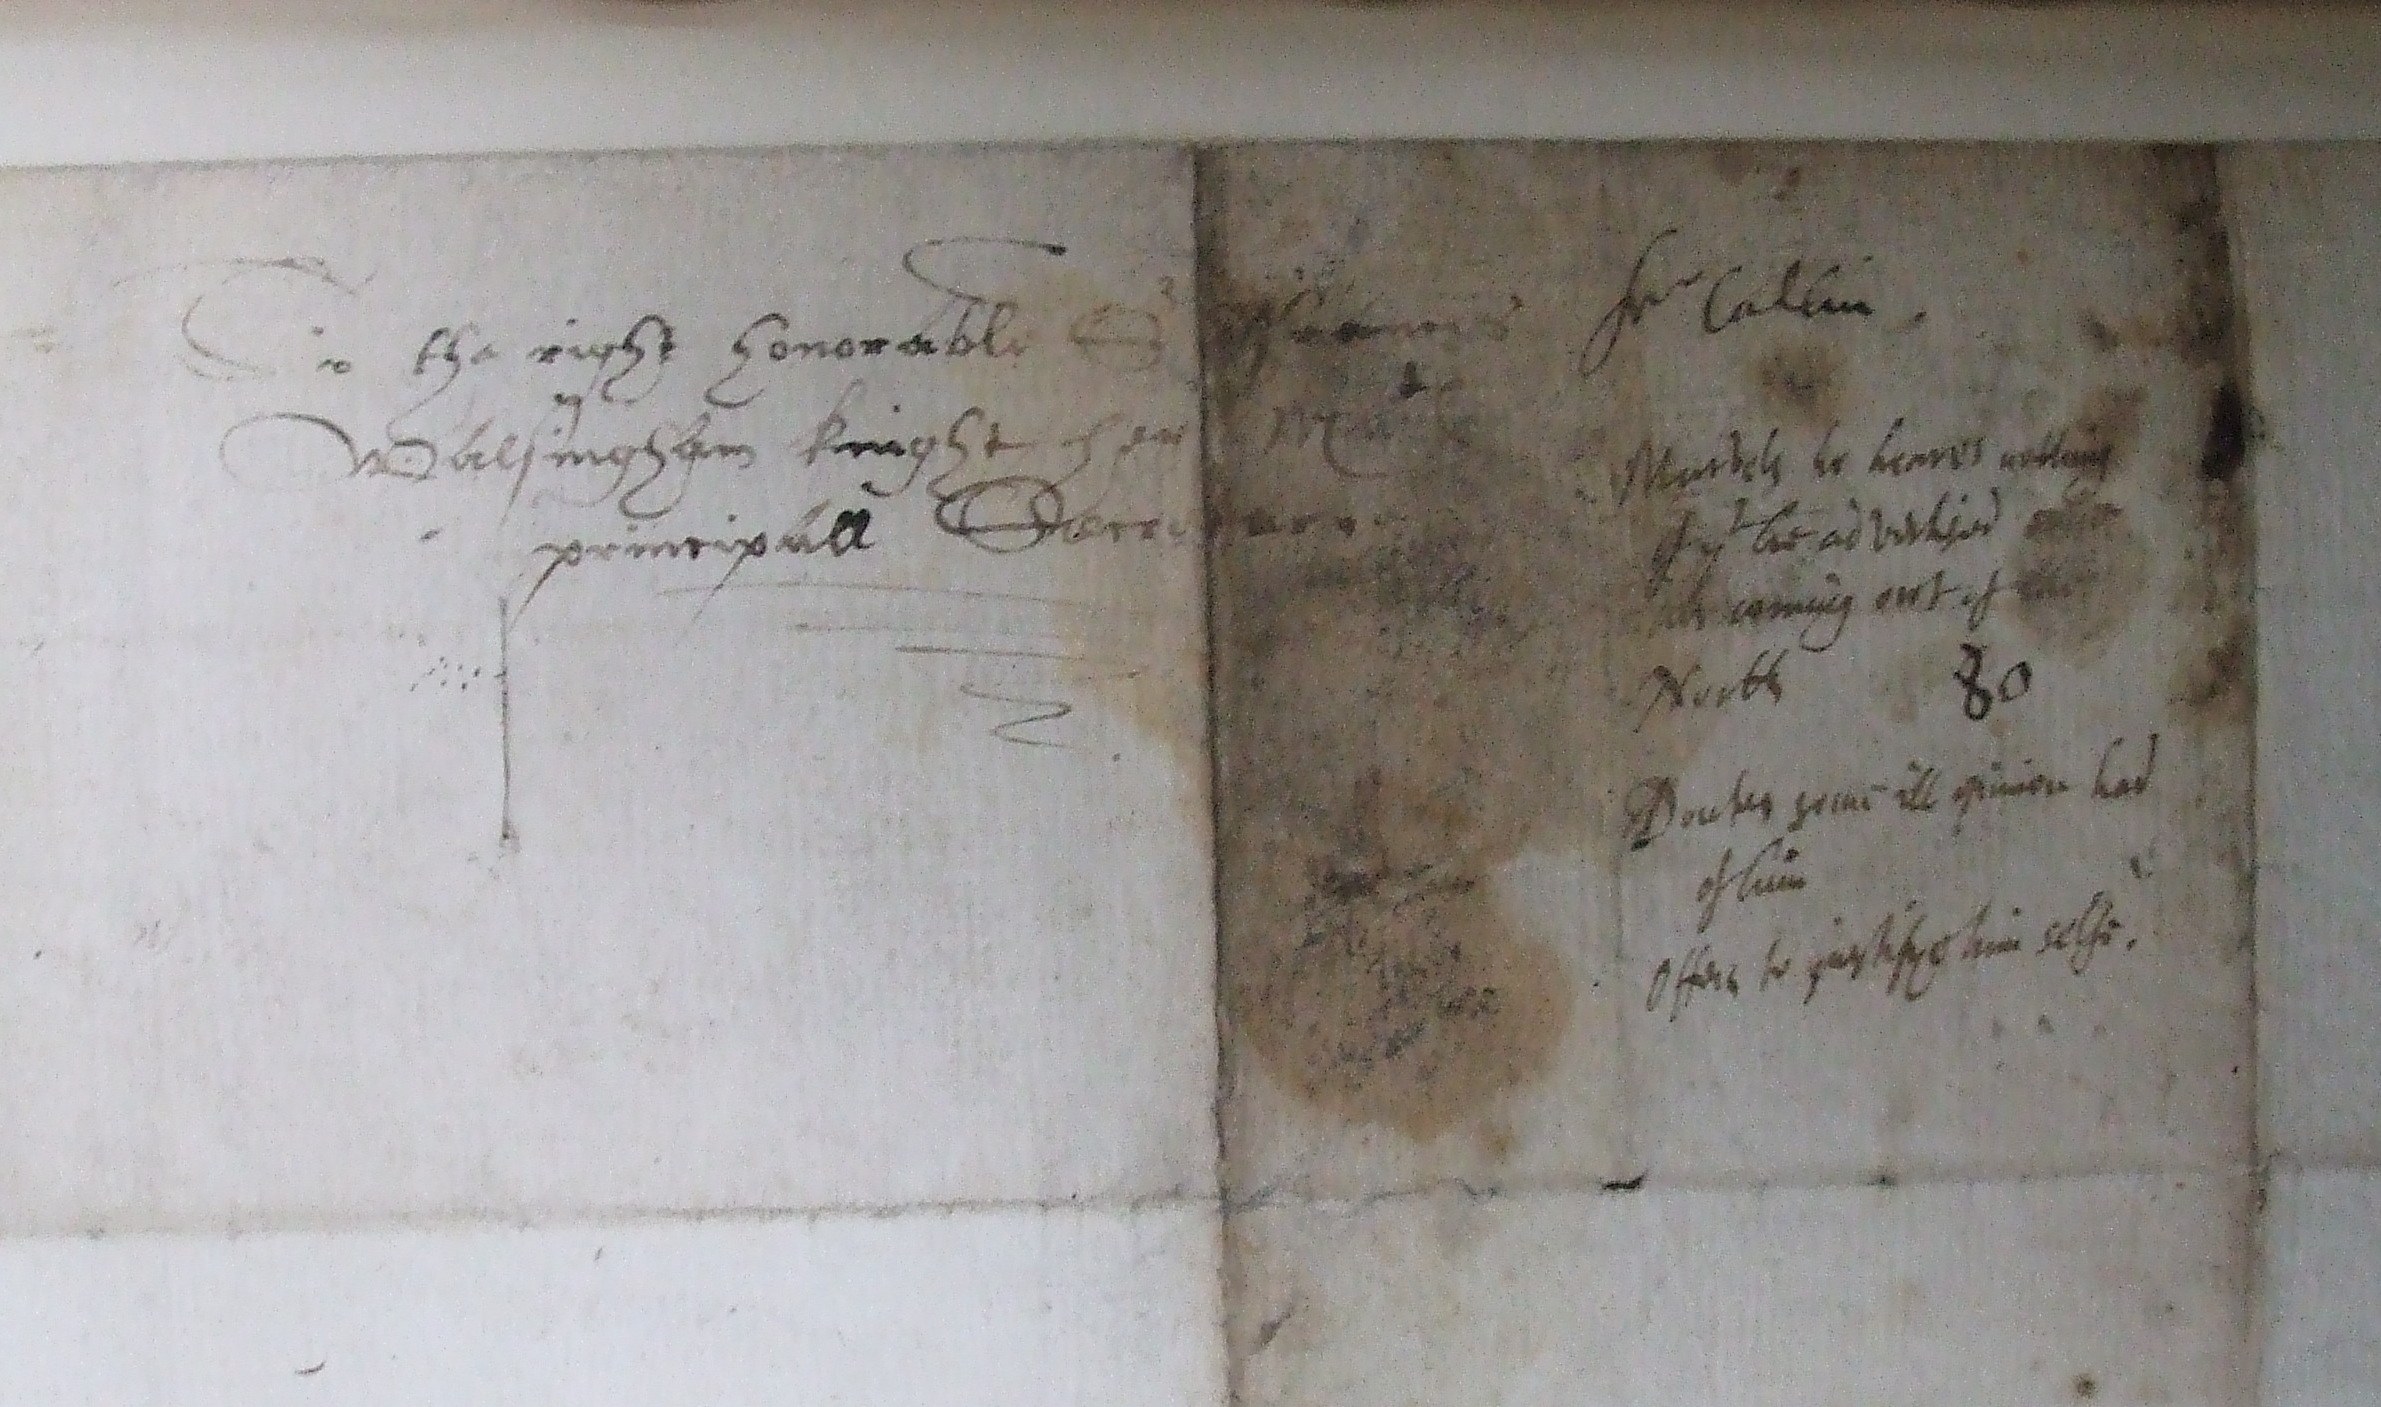 To the right honorable Sr Frauncis
Walsingham knight her Maties
principall Secretarye
Marvels he heares nothing
of yt he advertised
his coming out of the
North
80
Doutes some ill opinion had
of him
Offers to justifye him selfe.